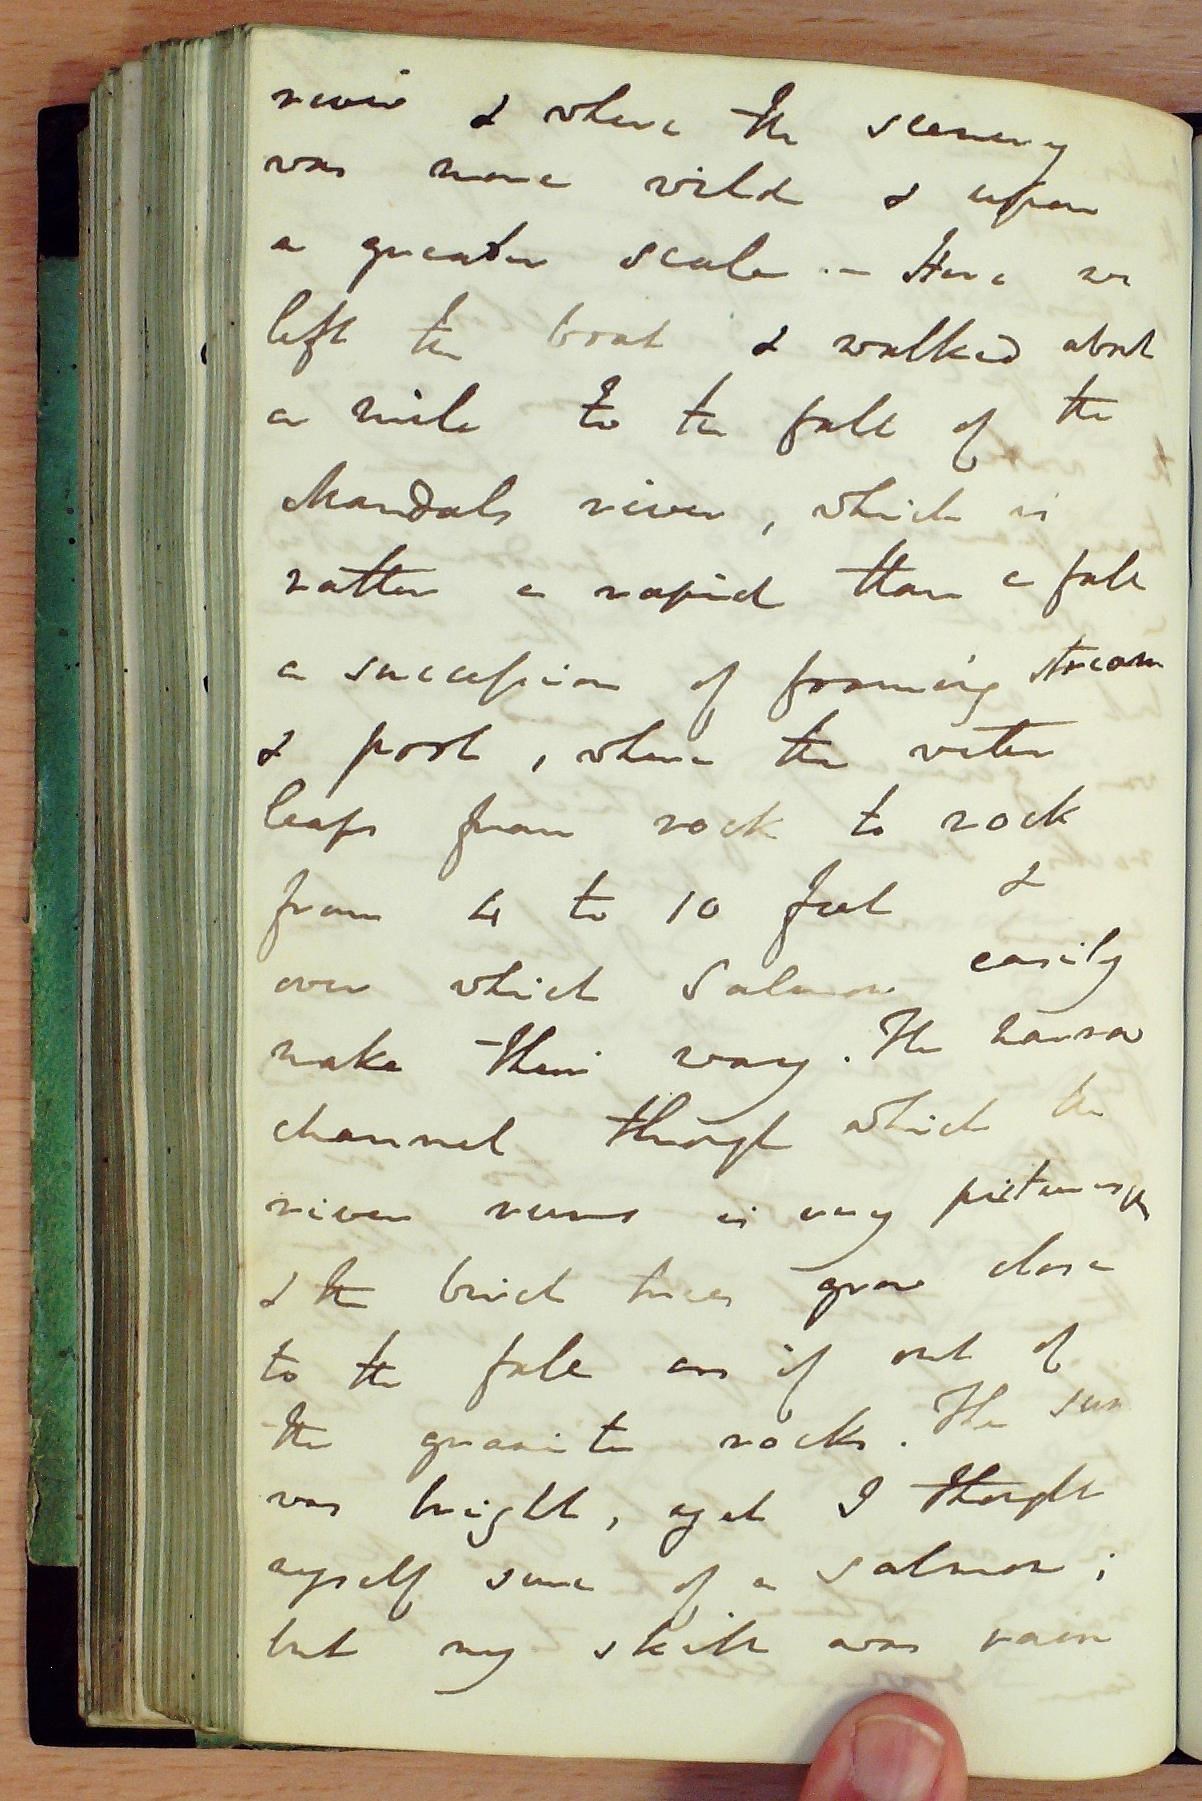 river & where the scenery
was more wild & upon
a greater scale. – Here we
left the boat & walked about
a mile to the fall of the
Mandals river, which is
rather a rapid than a fall
a succession of foaming stream
& pool, where the water
leaps from rock to rock
from 4 to 10 feet &
over which Salmon easily
make their way. The narrow
channel through which the
river runs is very picturesque
& the birch trees grow close
to the fall as if out of
the granite rocks. The sun
was bright, yet I thought
myself sure of a salmon;
but my skill was vain